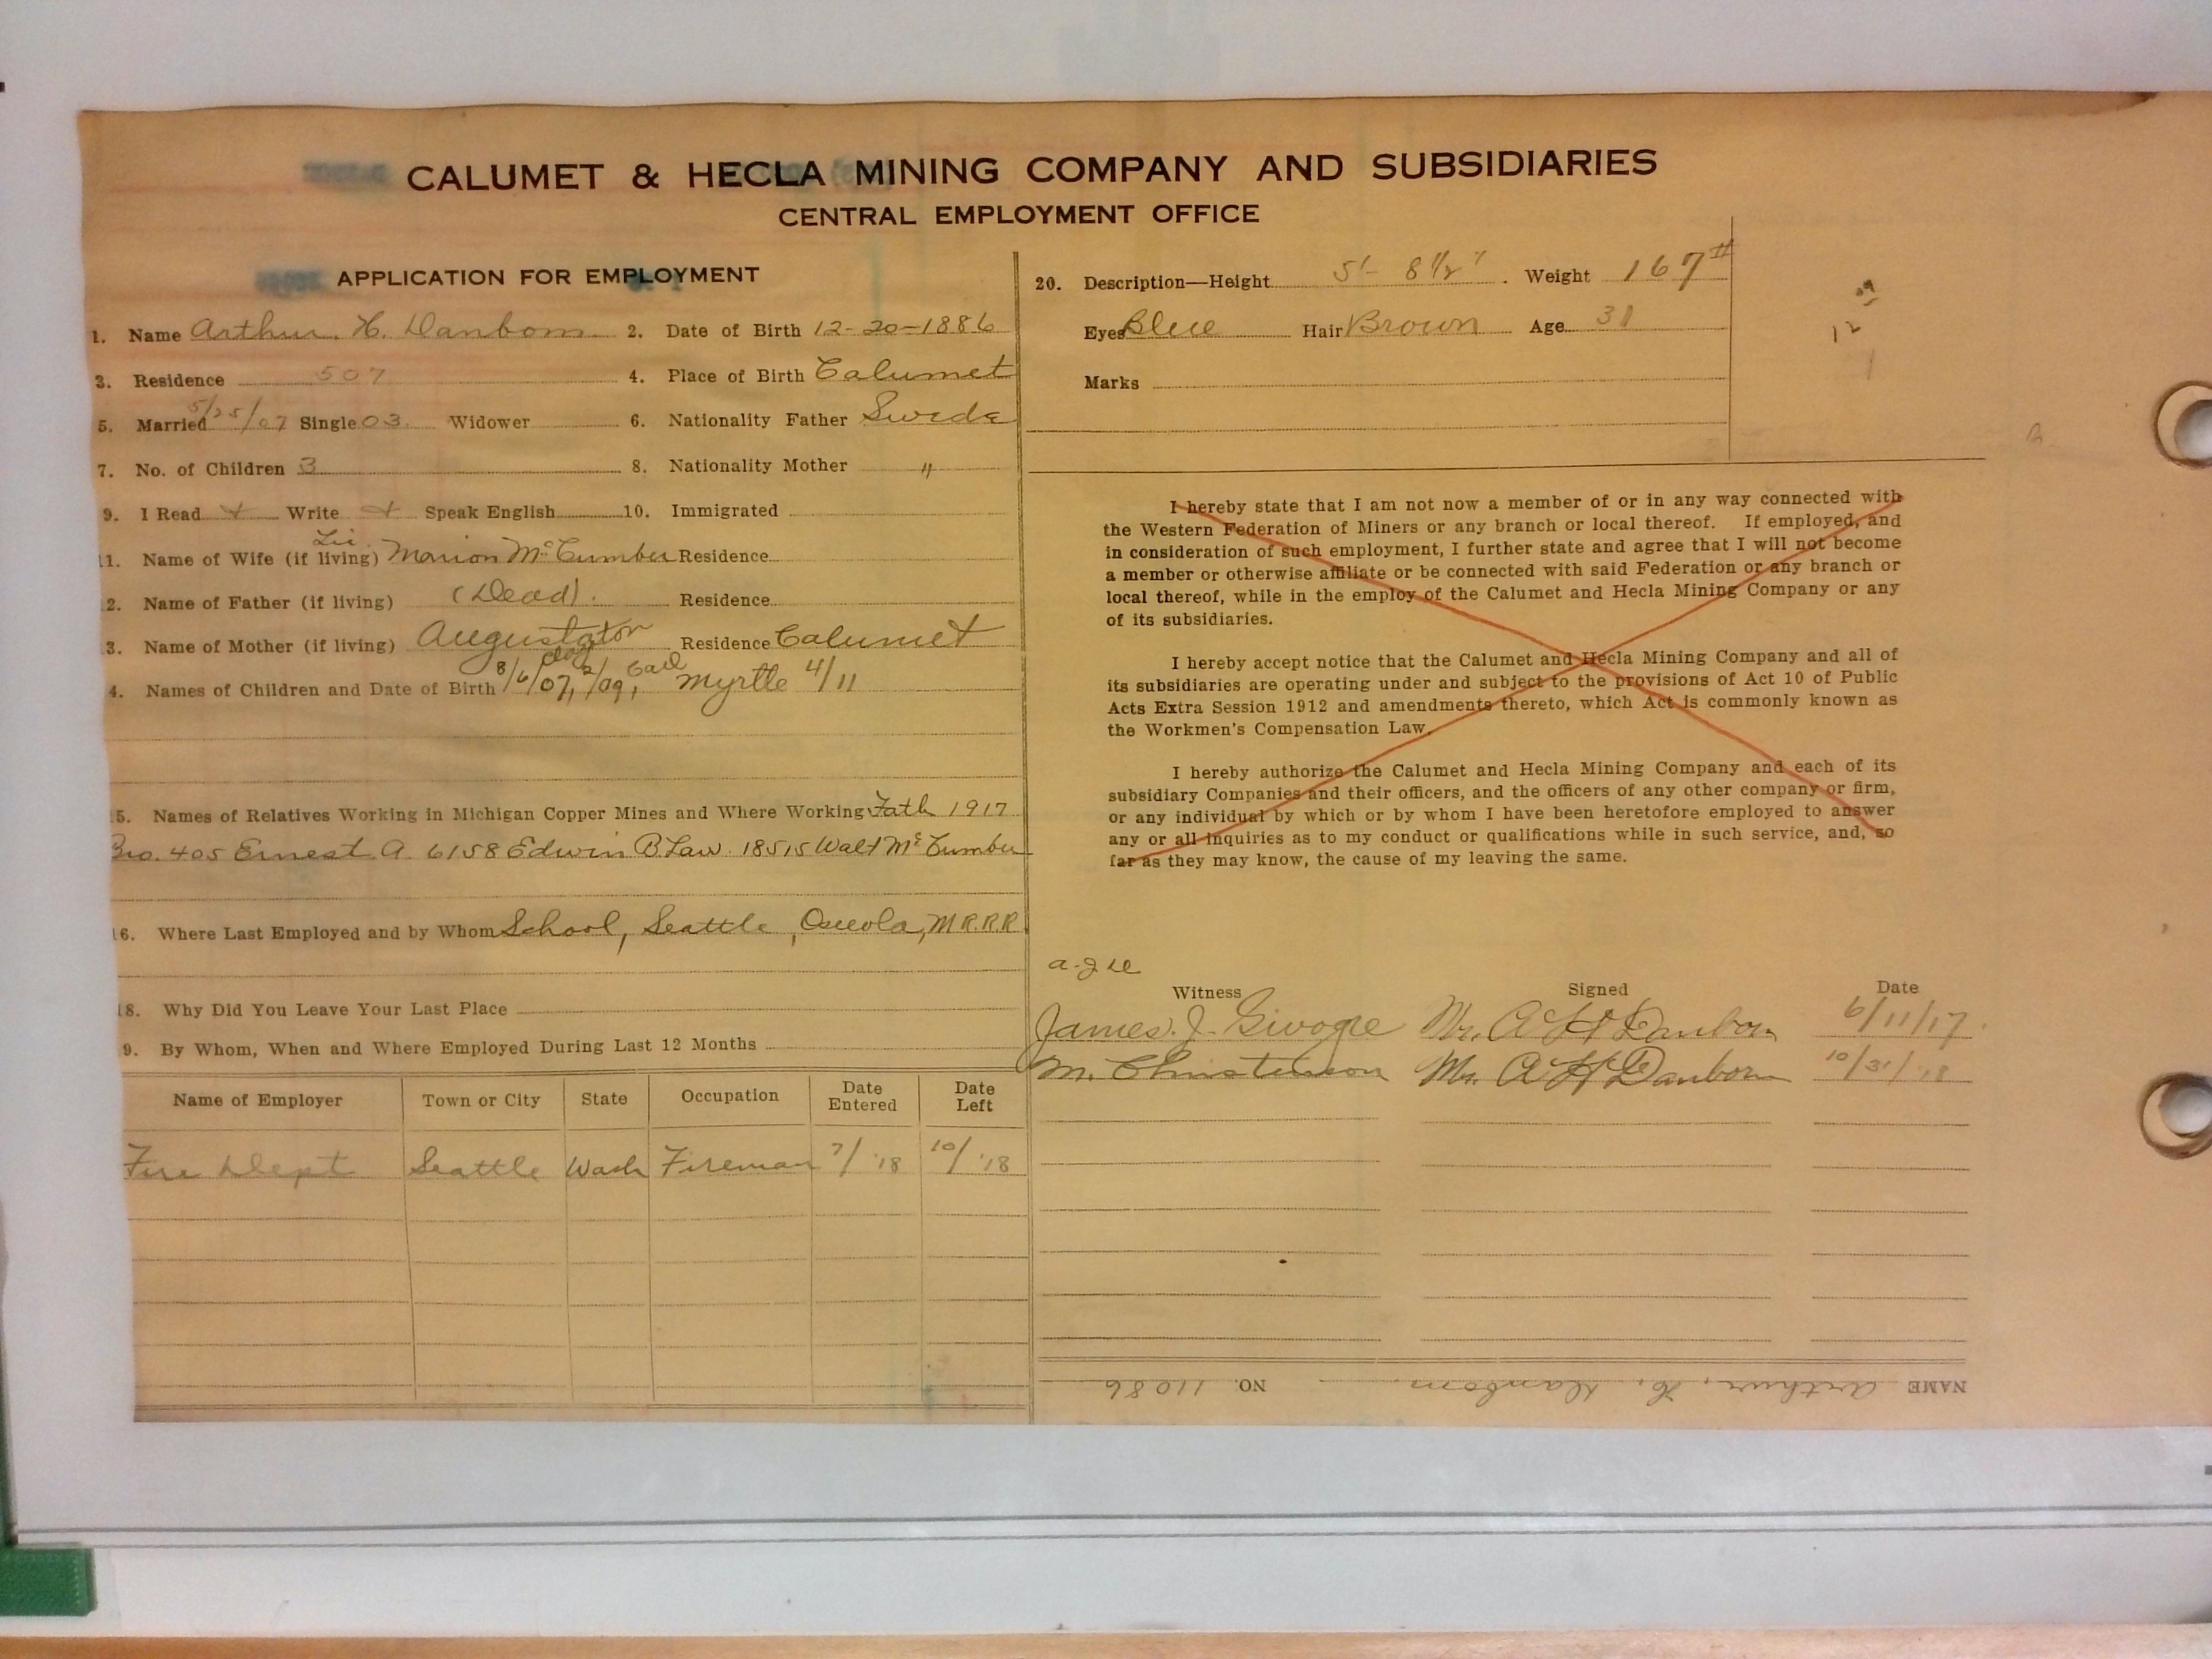 CALUMET & HECLA MINING COMPANY AND SUBSIDIARIES
CENTRAL EMPLOYMENT OFFICE
APPLICATION FOR EMPLOYMENT
1. Name Arthur. H. Danbom. 2. Date of Birth 12-20-1886
3. Residence 507 4. Place of Birth Calumet
5. Married 5/25/07 Single 03. Widower 6. Nationality Father Swede
7. No. of Children 3 8. Nationality Mother "
9. I Read + Write + Speak English 10. Immigrated
11. Name of Wife (if living) Marion McCumber Residence
2. Name of Father (if living) (Dead). Residence
3. Name of Mother (if living) Residence Calumet
4. Names of Children and Date of Birth 8/6/07, /09, Myrtle 4/11
5. Names of Relatives Working in Michigan Copper Mines and Where Working Fath 1917
Bro. 405 Ernest A 6158 Edwin B. Law. 18515 Walt McCumber
16. Where Last Employed and by Whom School, Seattle, Osceola, M R.R.R
18. Why Did You Leave Your Last Place
9. By Whom, When and Where Employed During Last 12 Months
Name of Employer Town or City State Occupation Date Entered Date Left
Fire Dept Seattle Wash Fireman 7/'18 10/'18
20. Description—Height 5'- 8 1/2" . Weight 167#
Eyes Blue Hair Brown Age 31
Marks
12
I hereby state that I am not now a member of or in any way connected with
the Western Federation of Miners or any branch or local thereof. If employed, and
in consideration of such employment, I further state and agree that I will not become
a member or otherwise affiliate or be connected with said Federation or any branch or
local thereof, while in the employ of the Calumet and Hecla Mining Company or any
of its subsidiaries.
I hereby accept notice that the Calumet and Hecla Mining Company and all of
its subsidiaries are operating under and subject to the provisions of Act 10 of Public
Acts Extra Session 1912 and amendments thereto, which Act is commonly known as
the Workmen's Compensation Law.
I hereby authorize the Calumet and Hecla Mining Company and each of its
subsidiary Companies and their officers, and the officers of any other company or firm,
or any individual by which or by whom I have been heretofore employed to answer
any or all inquiries as to my conduct or qualifications while in such service, and, so
far as they may know, the cause of my leaving the same.
Witness Signed Date
James. J. Mr. A H Danbom 6/11/17.
M. Christenson Mr. A H Danbom 10/31/'18
NAME Arthur, H, Danbom. NO. 11086